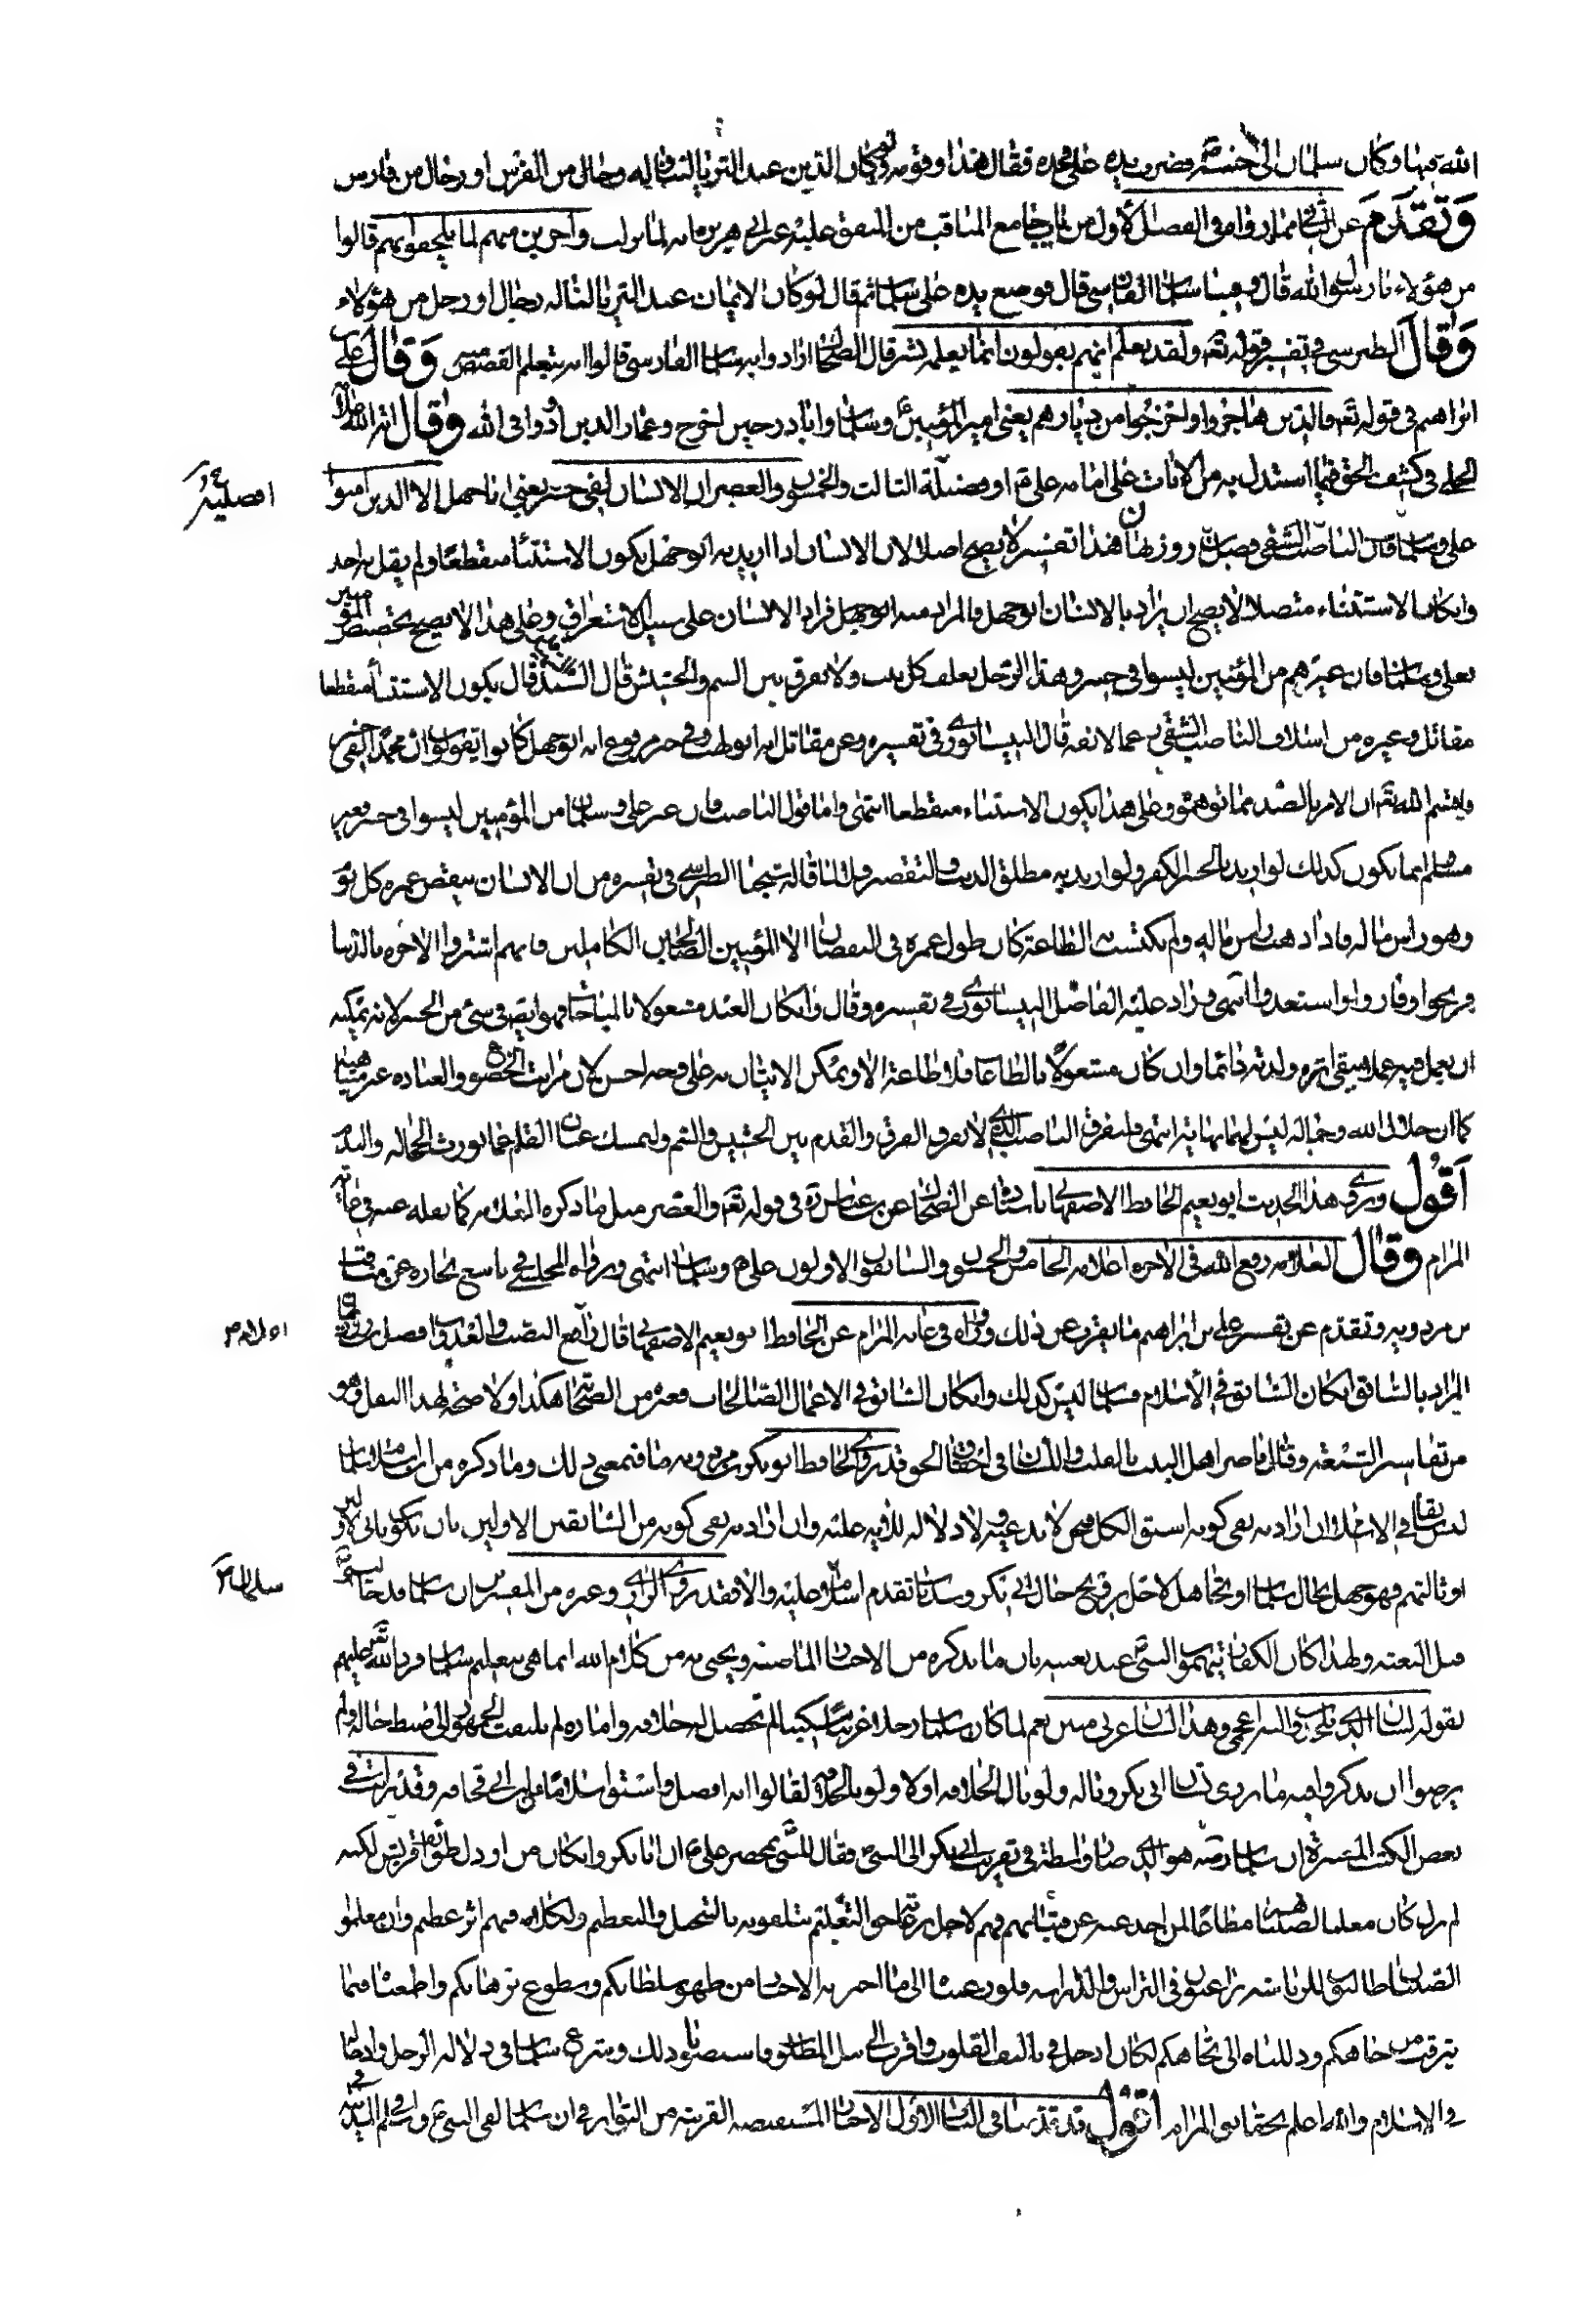 الله فيها وكان سلمان الى جنبه فضرب يده على فخذه فقال هذا وقومه ولو كان الدين عند الثريا لتناوله رجال من الفرس او رجال من فارس
وتقدم عن فيما رواه في الفصل الأول من جامع المناقب من المتفق عليه عن ابي هريرة انه لما نزلت وآخرين منهم لما يلحقوا بهم قالوا
من هؤلاء يا رسول الله قال وفينا سلمان الفارسي قال فوضع يده على سلمان ثم قال لو كان الايمان عند الثريا لناله رجال او رجل من هؤلاء
وقال الطبرسي في تفسير قوله تعالى ولقد نعلم انهم يقولون انما يعلمه بشر قال الضحاك ارادوا به سلمان الفارسي قالوا انه يتعلم القصص منه وقال علي بن
ابراهيم في قوله تعالى فالذين هاجروا واخرجوا من ديارهم يعني امير المؤمنين ع وسلمان وابا ذر حين اخرج وعمار الذين اوذوا في الله وقال آية الله العلامة
الحلي في كشف الحق فيما استدل به من الآيات على امامة علي ع او فضيلته الثالث والخمسون والعصر ان الانسان لفي خسر يعني ابا جهل الا الذين آمنوا
علي وسلمان قال الناصب الشقي فضل بن روزبهان هذا تفسير لا يصح اصلا لان الانسان اذا اريد به ابو جهل يكون الاستثناء منقطعا ولم يقل به احد
وان كان الاستثناء متصلا لا يصح ان يراد بالانسان ابو جهل فالمراد منه ابو جهل فراد الانسان على سبيل الاستغراق وعلى هذا لا يصح تخصيص المؤمنين
بعلي وسلمان فان غيرهم من المؤمنين ليسوا في خسر وهذا الرجل يعلف كل نبت ولا يفرق بين السم والحشيش قال السيد قال بكون الاستثناء منقطعا
مقاتل وغيره من اسلاف الناصب الشقي رغما لانفه قال النيسابوري في تفسيره وعن مقاتل انه ابو لهب وفي خبر مرفوع انه ابو جهل كانوا يقولون ان محمدا لفي خسر
واقسم الله تعالى ان الامر بالضد مما توهموه وعلى هذا يكون الاستثناء منقطعا انتهى واما قول الناصب فان غير علي وسلمان من المؤمنين ليسوا في خسر فغير
مسلم انما يكون كذلك لو اريد بالخسر الكفر ولو اريد به مطلق الذنب والتقصير فلنا ما قاله شيخنا الطبرسي في تفسيره من ان الانسان ينقص عمره كل يوم
وهو رأس ماله فاذا ذهب رأس ماله ولم يكتسب به الطاعة كان طول عمره في النقصان الا المؤمنين الصالحين الكاملين فانهم اشتروا الآخرة بالدنيا
فربحوا وفازوا وسعدوا انتهى وزاد عليه الفاضل النيسابوري في تفسيره وقال وان كان العبد مشغولا بالمباحات فهو ايضا في شيء من الخسر لانه يمكنه
ان يعمل فيه عملا يبقى اثره ولذته دائما وان كان مشغولا بالطاعات فلا طاعة الا ويمكن الاتيان به على وجه احسن لان مراتب الخضوع والعبادة غير متناهية
كما ان جلال الله وجماله ليس لهما نهاية انتهى فليفرق الناصب الذي لا يعرف الفرق والقدم بين الحشيش والسم وليمسك عنان القلم عما يورث الخجالة والندم
اقول وروى هذا الحديث ابو نعيم الحافظ الاصفهاني باسناده عن الضحاك عن ابن عباس ره في قوله تعالى والعصر مثل ما ذكره العلامة كما نقله عنه في غاية
المرام وقال العلامة رفع الله في الآخرة اعلامه الخامس والخمسون والسابقون الاولون علي ع وسلمان انتهى ورواه المجلسي في تاسع بحاره عن مناقب
بن مردويه وتقدم عن تفسير علي بن ابراهيم ما يقرب عن ذلك ورواه في غاية المرام عن الحافظ ابو نعيم الاصفهاني قال واضع النصب والعدوان فضل بن روزبهان
المراد بالسابق ان كان السابق في الاسلام فسلمان ليس كذلك وان كان السابق في الاعمال الصالحات فغيره من الصحابة هكذا ولا صحة لهذا النقل وهو
من تفاسير الشيعة وقال ناصر اهل البيت بالقلب واللسان في احقاق الحق قد روى الحافظ ابو بكر بن مردويه ما في معنى ذلك وما ذكره من ان سلمان
ليس سابقا في الاسلام ان اراد به نفي كونه اسبق الكل فصحيح لا ندعيه ولا دلالة للآية عليه وان اراد به نفي كونه من السابقين الاولين بان يكون ثاني الاولين
او ثالثهم فهو جهل بحال سلمان او تجاهل لاجل ترويج حال ابي بكر وسيأتي تقدم اسلامه عليه والا فقد روى الرازي وغيره من المفسرين ان سلمان قد جاء
قبل البعثة ولهذا كان الكفار يتهموا النبي عند بعثته بان ما يذكره من الاخبار الماضية ويجيء به من كلام الله انما هي بتعليم سلمان فرد الله تعالى عليهم
بقوله لسان الذي يلحدون اليه اعجمي وهذا لسان عربي مبين نعم لما كان سلمان رجلا غريبا مسكينا لم تحصل له خلافة وامارة لم يلتفت الجمهور الى ضبط حاله ولم
يرضوا ان يذكروا فيه ما يزري بشأن ابي بكر وناله ولو نال الخلافة اولا ولو بالجملة لقالوا انه افضل واسبق اسلاما من ابي قحافة وقد رأيت في
بعض الكتب المعتبرة ان سلمان رضه هو الذي صار واسطة في تقريب ابي بكر الى النبي ص فقال للنبي بمحضر علي ع ان ابا بكر وان كان من ارذل طوائف قريش لكنه
لم يزل كان معلما لصبيانهم مطاعا لمن اخذ عنه من فتيانهم فهم لاجل رعايتهم حق التعليم يتلقونه بالتبجيل والتعظيم ولكلامه فيهم اثر عظيم وان معلمي
الصبيان طالبون للرياسة راغبون في الترأس والدراسة فلو رغبناه الى ما اخبر به الاخبار من ظهور سلطانكم وسطوع برهانكم واطمعناه فيما
يترقب من جاهكم ودللناه الى تجاهكم لكان ادخل في تأليف القلوب واقرب الى نيل المطلوب فاستصوبا ذلك وشرع سلمان في دلالة الرجل وادخاله
في الاسلام والله اعلم بحقايق المرام اقول قد قدمنا في الباب الاول الاخبار المستفيضة القريبة من التواتر في ان سلمان لقى النبي ص واسلم في المدينة